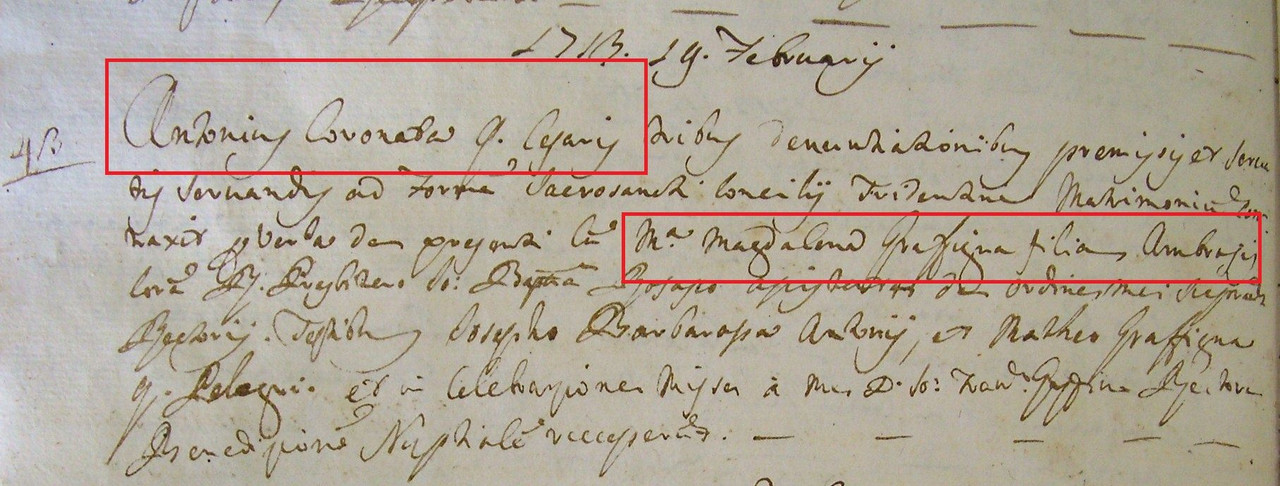 1713. 19. Februarij
43
Antonius Coronata q. Cesaris tribus denuntiationibus premissis et serua
tis seruandis ad formã Sacrosancti Concilij Tridentini Matrimoniũ con
traxit p verba de presenti cũ Mª Magdalena Graffigna filia Ambrosij
corã Pbytero Jo: Bapta de ordine mei
Rectoris. Testibus Josepho Barbarossa Antonij, et Matheo Graffigna
q. Pelegri. et in Celebratione Missa à me D. Jo: Rectore
Benedictionẽ Nuptialẽ recceperũt.